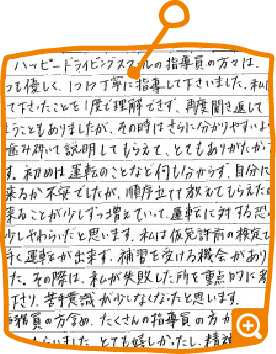 ハッピードライビングスクールの指導員の方々は、
っても優しく、1つ1つ丁寧に指導して下さいました。私に
て下さったことを1度で理解できず、再度聞き返して
うこともありましたが、その時はさらに分かりやすいよ
歯み砕いて説明してもらえて、とてもありがたかっ
す。初めは運転のことなど何も分からず、自分に
来るか不安でしたが、順序立てて教えてもらえた
来ることが少しずつ増えていって、運転に対する恐
少しやわらいだと思います。私は仮免許前の検定で
手く運転が出来ず、補習を受ける機会があり
た。その際は、私が失敗した所を重点的に
下さり、苦手意識が少しなくなったと思います。
指導員の方含め、たくさんの指導員の方か
らいました。とても嬉しかったし、精神